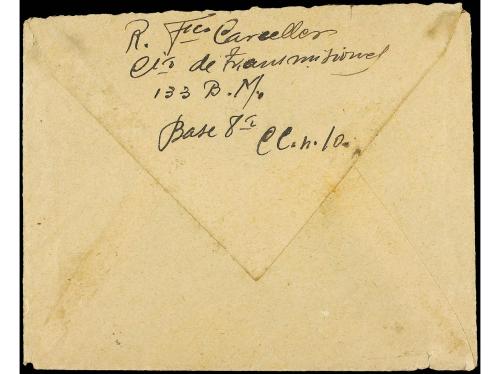 R. Fco Carceller
Cia de transmisiones
133 B.M.
Base 8ª CC.n.10.